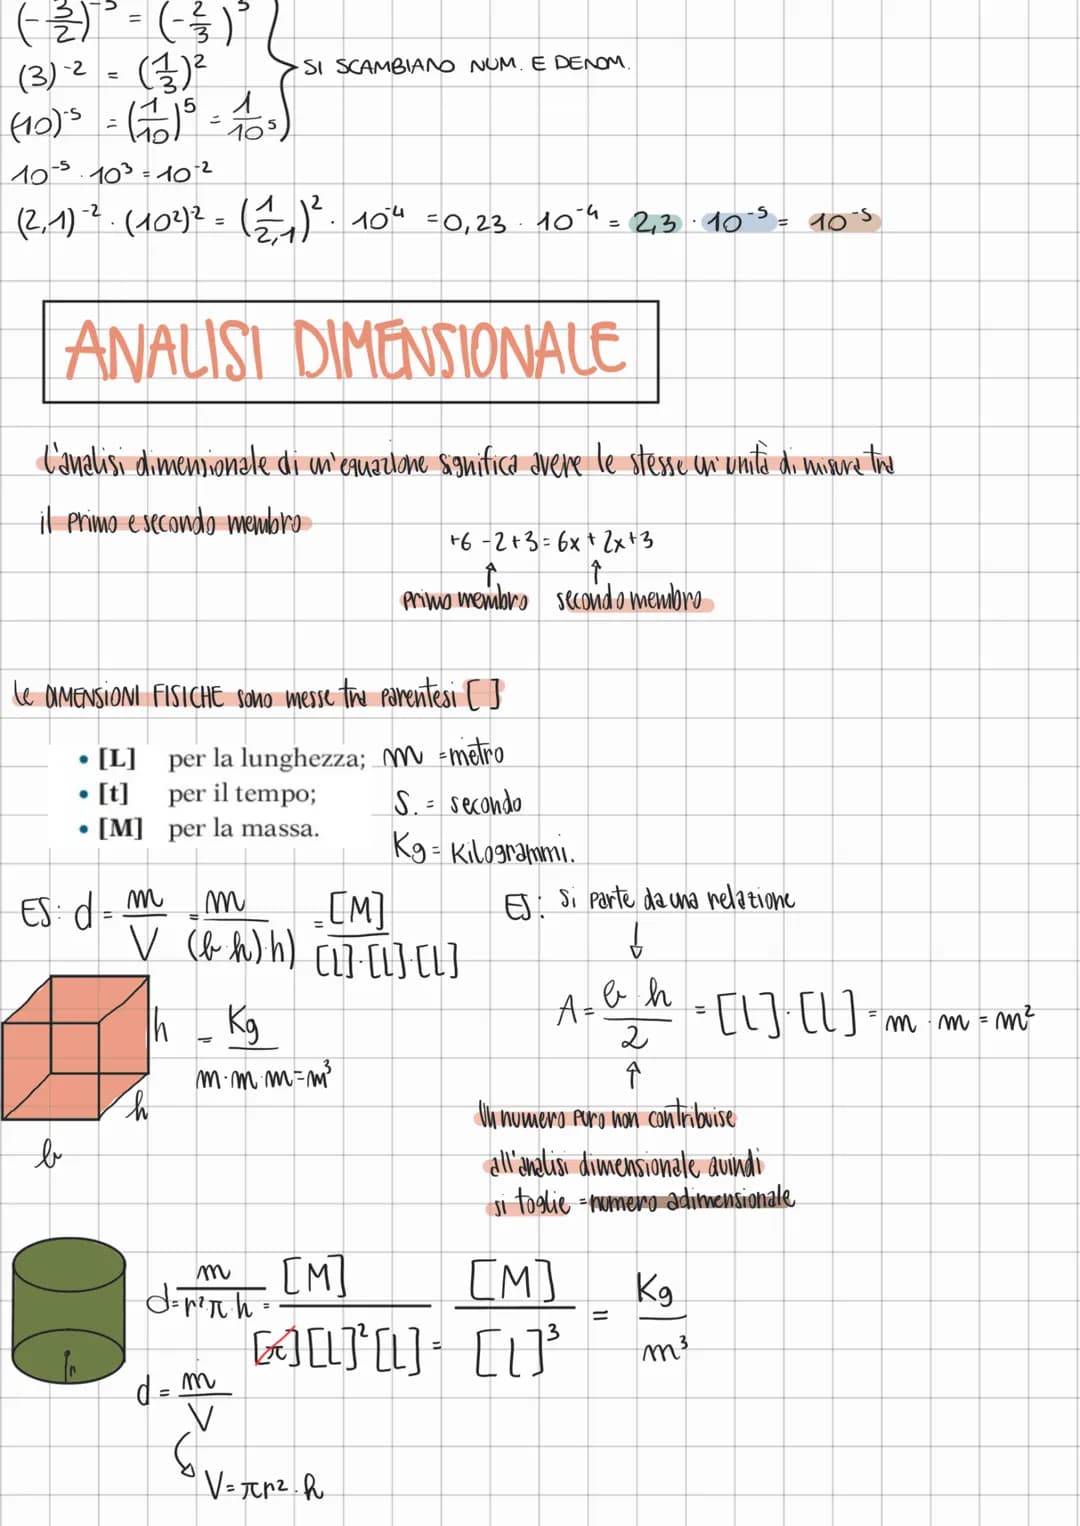 (-3/2)⁻³ = (-2/3)³
(3)⁻² = (1/3)² SI SCAMBIANO NUM. E DENOM.
(10)⁻⁵ = (1/10)⁵ = 1/10⁵
10⁻⁵ · 10³ = 10⁻²
(2,1)⁻² · (10²)² = (1/2,1)² · 10⁻⁴ = 0,23 · 10⁻⁴ = 2,3 · 10⁻⁵ = 10⁻⁵
ANALISI DIMENSIONALE
L'analisi dimensionale di un'equazione significa avere le stesse un'unità di misura tra
il primo e secondo membro
+6 -2+3 = 6x + 2x+3
↑ ↑
primo membro secondo membro
le DIMENSIONI FISICHE sono messe tra parentesi [ ]
• [L] per la lunghezza; m = metro
• [t] per il tempo; S. = secondo
• [M] per la massa. Kg = Kilogrammi.
ES: d = m/V = m/(b·h)·h) = [M]/[L]·[L]·[L]
h = Kg/m·m·m=m³
h
b
ES: Si parte da una relazione
↓
A = b·h/2 = [L]·[L] = m · m = m²
↑
Un numero puro non contribuise
all'analisi dimensionale quindi
si toglie = numero adimensionale
d = m/r²π·h = [M]/[π][L]²[L] = [M]/[L]³ = Kg/m³
r
d = m/V
V = πr² · h